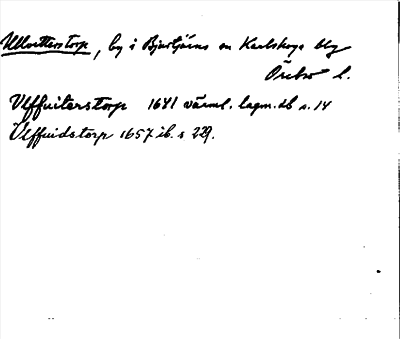 Ulvetterstorp, by i Bjurtjärns sn Karlskoga blg
Örebro l.
Vlffuiterstorp 1641 värml. lagm. db s. 14
Vlffuidstorp 1657 ib. s 229.